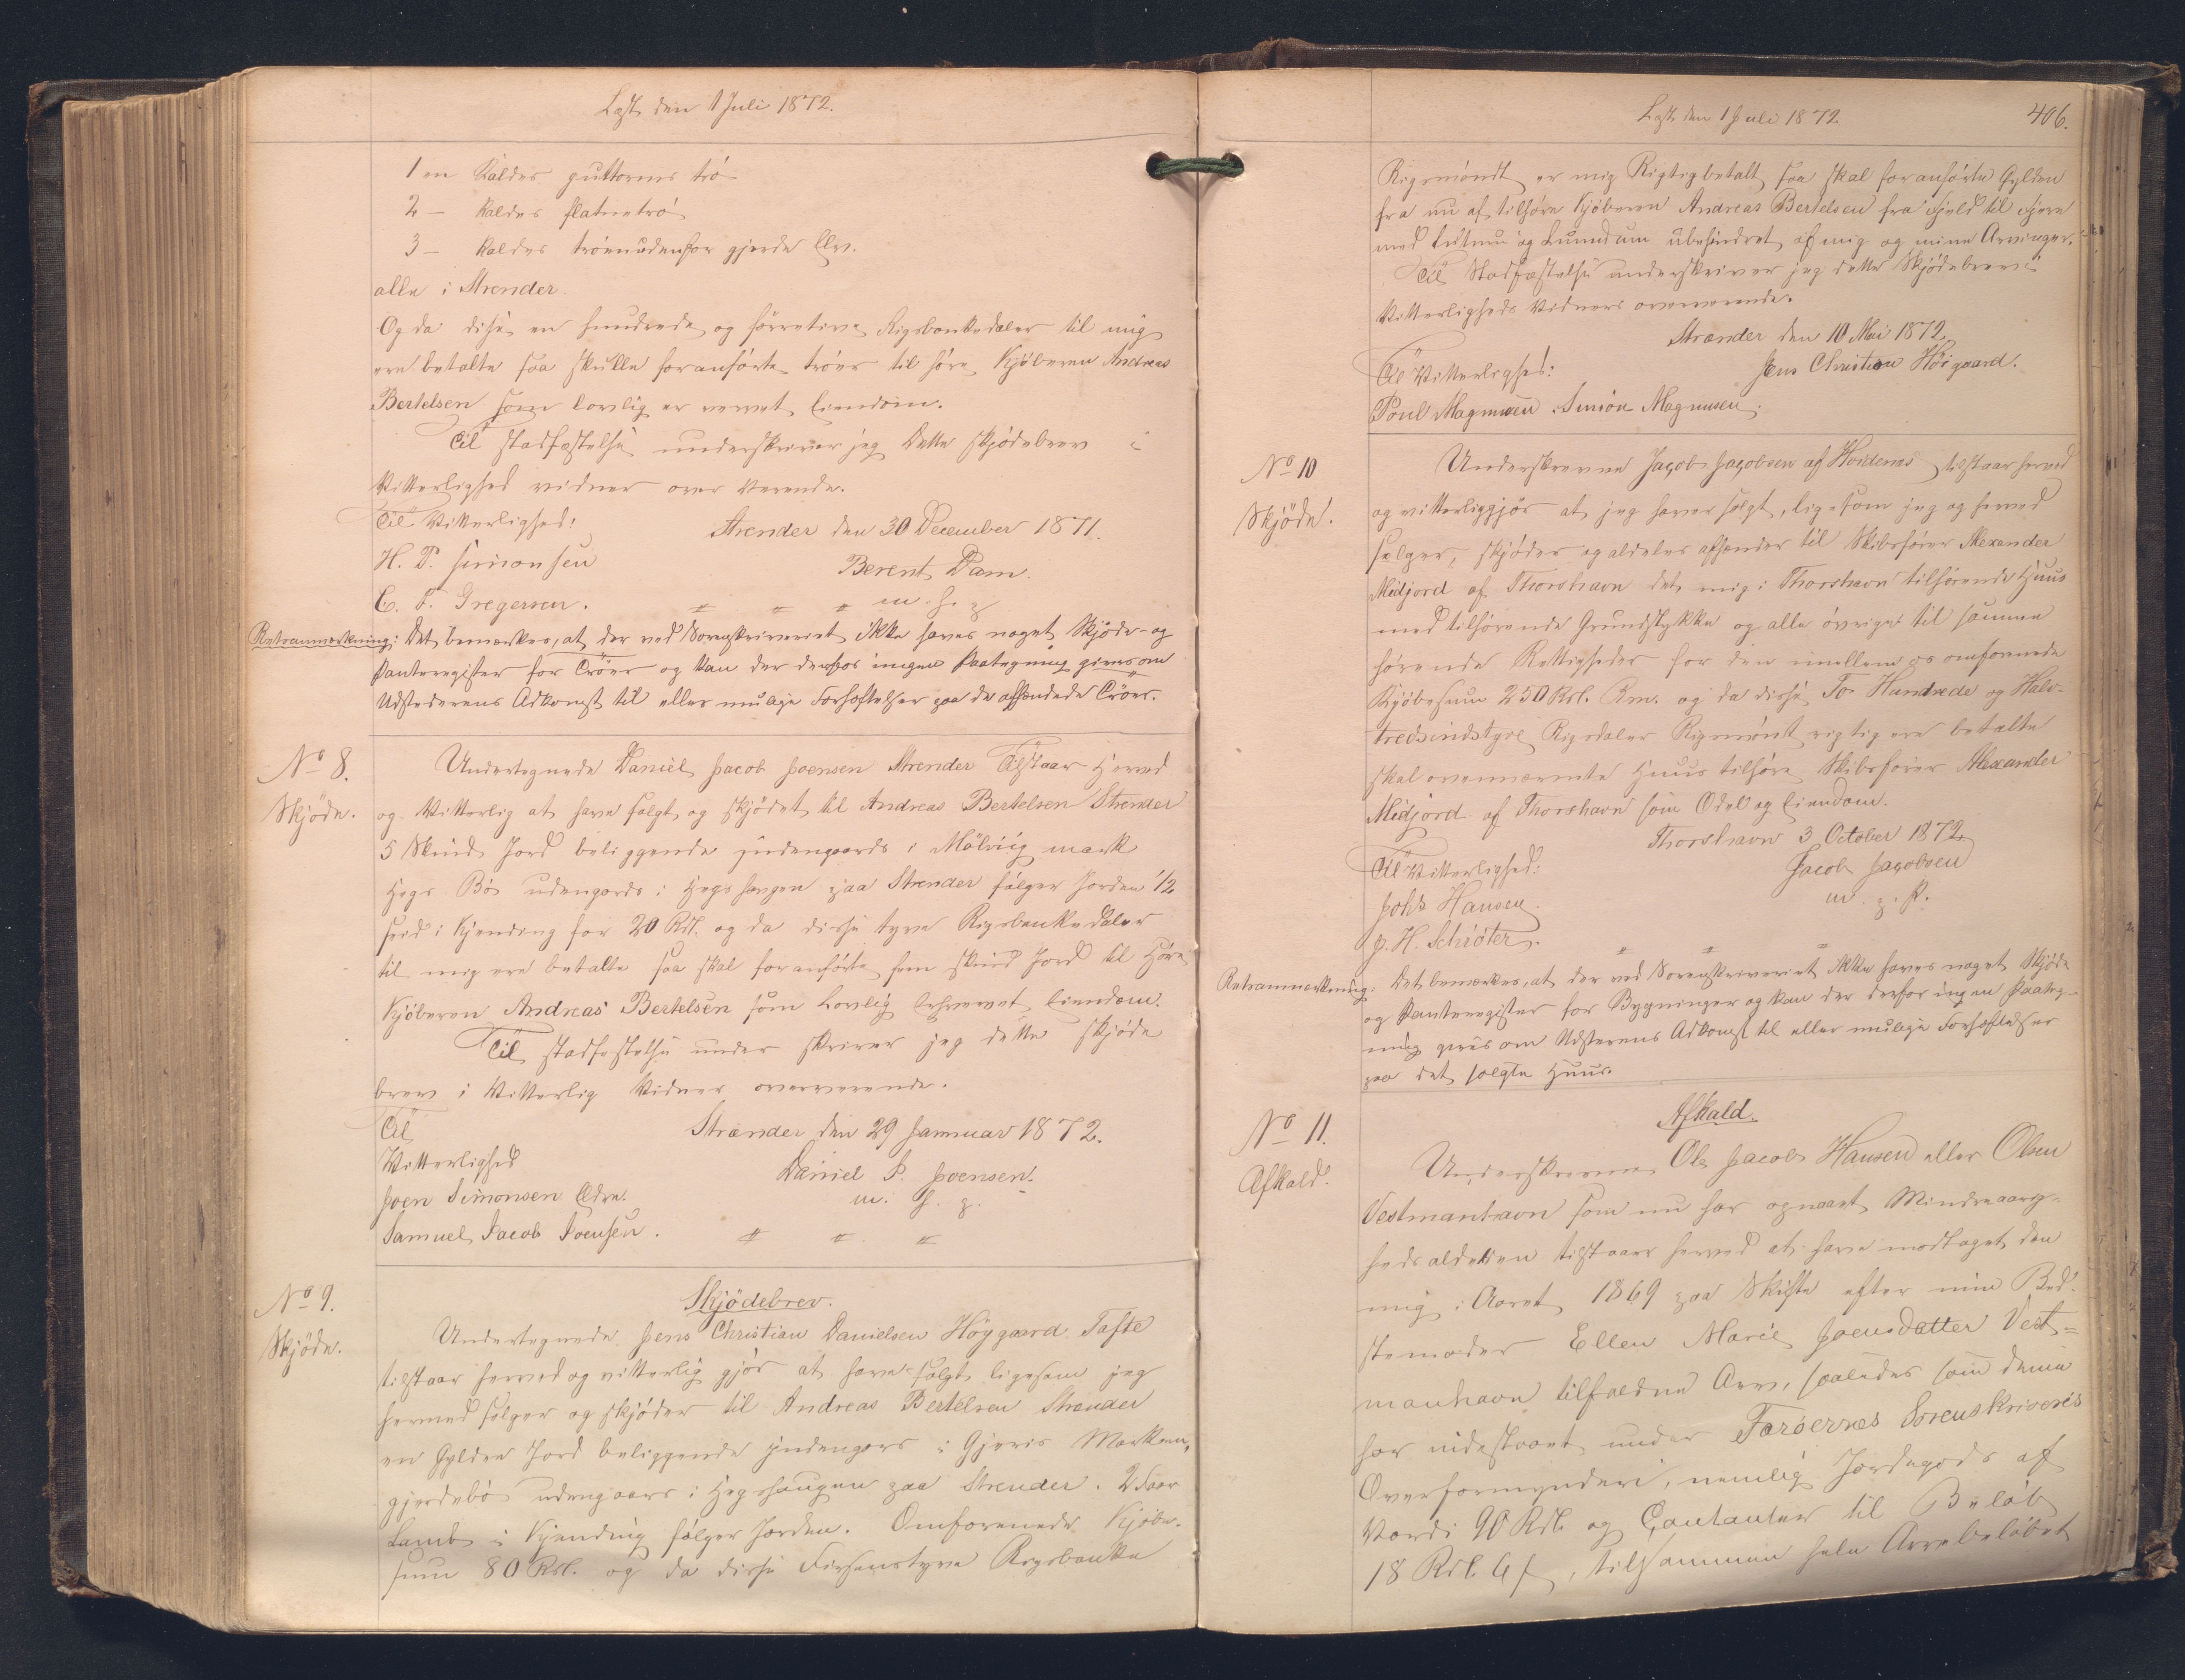 Læst den 1 Juli 1872.
1 en kaldes guttorms tró
2 - kaldes flatnetró
3 - kaldes tróenudenfor gjerde Elv.
alle i Strender.
Og da disse en hundrede og Rigsbankdaler til mig
ere betalte saa skulle foranførte tróer til høre Kjøberen Andreas
Bertelsen som lovlig er vervet Eiendom.
Til stadfæstelse underskriver jeg Dette skjødebrev i
Vitterlighed vidner over værende.
Til Vitterlighed:
Strender den 30 December 1871.
H. P. Simonsen
Berent Dam.
C. F. Gregersen.
m. f. p
Retranmærkning: Det bemærkes, at der ved Sorenskriveriet ikke haves noget Skjøde- og
Panteregister for Tróer og kan der derfor ingen Paategning gives om
Udstederens Adkomst til eller mulige Forhæftelser paa de afhændede Tróer.
No 8.
Skjøde.
Undertegnede Daniel Jacob Joensen Strender Tilstaar Herved
og Vitterlig at have solgt og skjødet til Andreas Bertelsen Strender
5 Skind Jord beliggende indengaards i Mölviig mark
Bö udengards i paa Strender følger Jorden 1/2
i Kjending for 20 Rdl. og da disse tyve Rigsbankedaler
til mig ere betalte saa skal foranførte fem skind Jord til Höre
Kjøberen Andreas Bertelsen som Lovlig Erhvervet Eiendom.
Til stadfæstelse under skriver jeg dette skjøde
brev i Vitterlig Vidner overværende.
Til
Strænder den 29 Januar 1872.
Vitterlighed
Daniel J. Joensen.
Joen Simonsen Eldre.
m. f. p.
Samuel Jacob Joensen.
No 9.
Skjøde.
Skjödebrev.
Undertegnede Jens Christian Danielsen Höygaard Tofte
tilstaar herved og vitterlig gjør at have solgt ligesom jeg
herved sælger og skjøder til Andreas Bertelsen Strænder
en Gylden Jord beliggende indengars i Gjeris Marken,
gjerdebö udengaars i paa Strender. 2 Faar
Lamb i Kjending følger Jorden. Omforenede Kjøbe-
sum 80 Rdl. og da disse Firsenstyve Rigsbanke
Læst den 1 Juli 1872
406.
Rigsmöndt er mig Rigtigbetalt saa skal foranførte Gylden
fra nu af tilhøre Kjøberen Andreas Bertelsen fra Fjeld til Fjere
med Lutnu og Lunnd um ubehindret af mig og mine Arvinger.
Til Stadfæstelse underskriver jeg dette Skjødebrev i
Vitterligheds Vidners overværende.
Strænder den 10 Mai 1872
Til Vitterlighed:
Jens Christian Höigaard.
Poul Magnusen Simon Magnusen.
No 10
Skjøde.
Underskrevne Jacob Jacobsen af Hvidenæs tilstaar herved
og vitterliggjør at jeg haver solgt, ligesom jeg og herved
sælger, skjøder og aldeles afhænder til Skibsfører Alexander
Midjord af Thorshavn det mig i Thorshavn tilhørende Huus
med tilhørende Grundstykke og alle øvrige til samme
hørende Rettigheder for den imellem os omforenede
Kjøbesum 250 Rdl. Rm. og da disse To Hundrede og Halv-
tredsindstyve Rigsdaler Rigsmønt rigtig ere betalte
skal ovennævnte Huus tilhøre Skibsfører Alexander
Midjord af Thorshavn som Odel og Eiendom.
Thorshavn 3 October 1872
Til Vitterlighed:
Jacob Jacobsen
Johs Hansen.
m. p. f.
J. H. Schröter.
Retranmærkning: Det bemærkes, at der ved Sorenskriveriet ikke haves noget Skjøde
og Panteregister for Bygninger og kan der derfor ingen Paateg-
ning gives om Udsterens Adkomst til eller mulige Forhæftelser
paa det solgte Huus.
No 11.
Afkald.
Afkald.
Underskrevne Ole Jacob Hansen eller Olsen
Vestmanhavn som nu har opnaaet Mindreaarig-
hedsalderen tilstaar herved at have modtaget den
mig i Aaret 1869 paa Skifte efter min Bed-
stemoder Ellen Marie Joensdatter Vest-
manhavn tilfaldne Arv, saaledes som denne
har indestaaet under Færøernes Sorenskriveris
Overformynderi, nemlig Jordegods af
Værdi 90 Rdl. og Contanter til Beløb
18 Rdl. 6 f, tilsammen hele Arvebeløbet